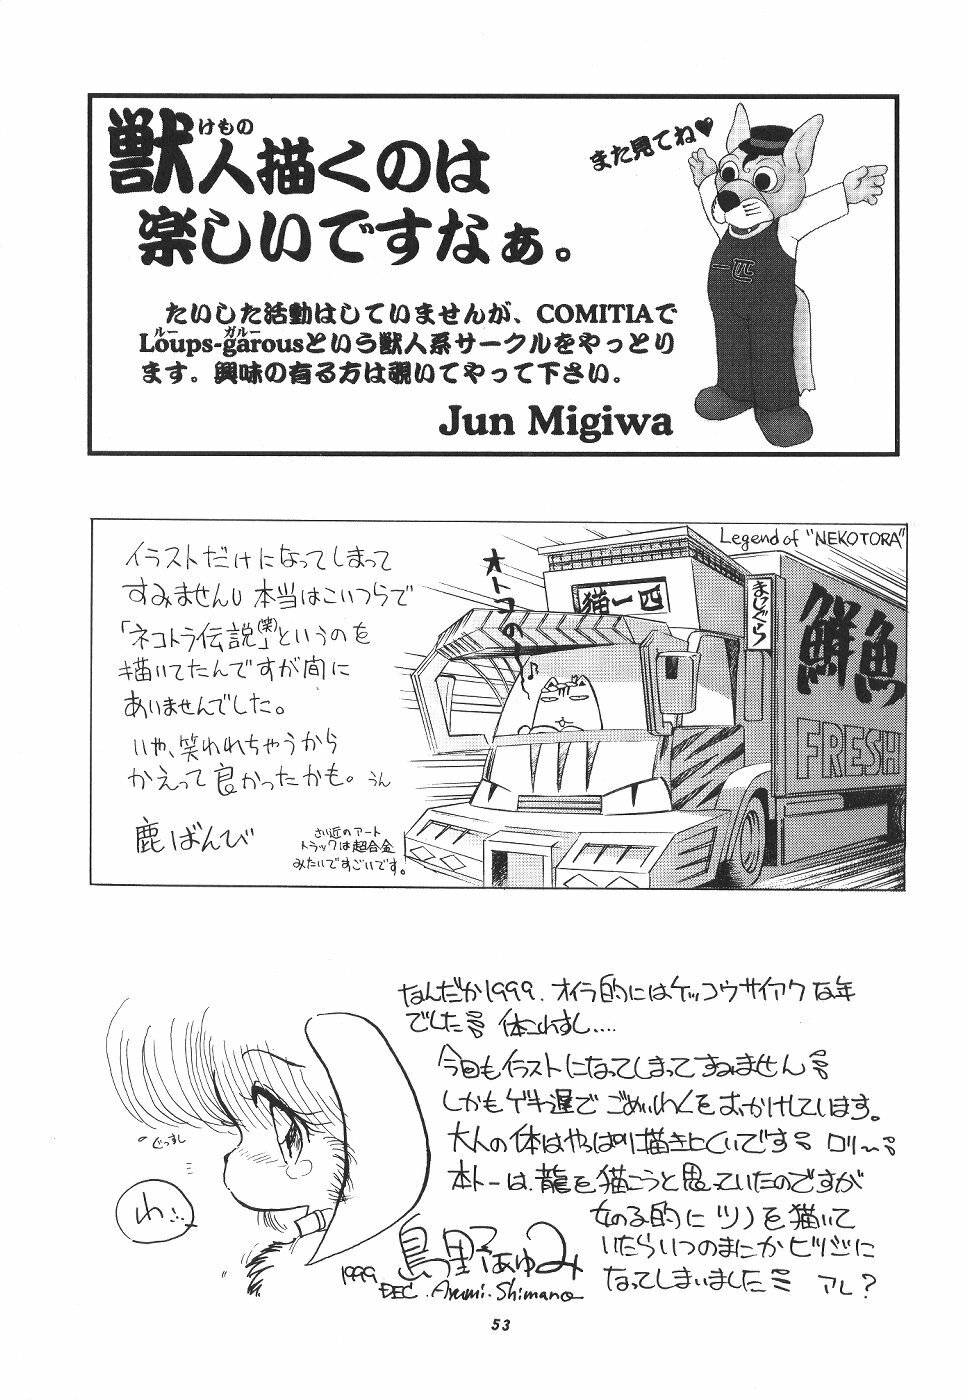 獣人描くのは
けもの
楽しいですなぁ。
また見てね♥
一匹
たいした活動はしていませんが、COMITIAで
Loups-garousという獣人系サークルをやっとり
ルー ガルー
ます。興味の有る方は覗いてやって下さい。
Jun Migiwa
イラストだけになってしまって
すみませんU 本当はこいつらで
「ネコトラ伝説(笑)」というのを
描いてたんですが間に
あいませんでした。
いや、笑われちゃうから
かえって良かったかも。うん
鹿ばんび
さい近のアート
トラックは超合金
みたいですごいです。
Legend of "NEKOTORA"
オトコの〜
♪
猫一匹
まじぐろ
鮮魚
FRESH
なんだか1999、オイラ的にはケッコウサイアクな年
でした 体こわすし....
今回もイラストになってしまってすみません
しかもゲキ遅でごめいわくをおかけしています。
大人の体はやっぱり描きにくいです ロリ〜
本トーは、龍を描こうと思っていたのですが
女の子的にツノを描いて
いたらいつのまにかヒツジに
なってしまいました アレ?
ぐっすし
わ...
島野あゆみ
1999.
DEC. Ayumi. Shimano
53